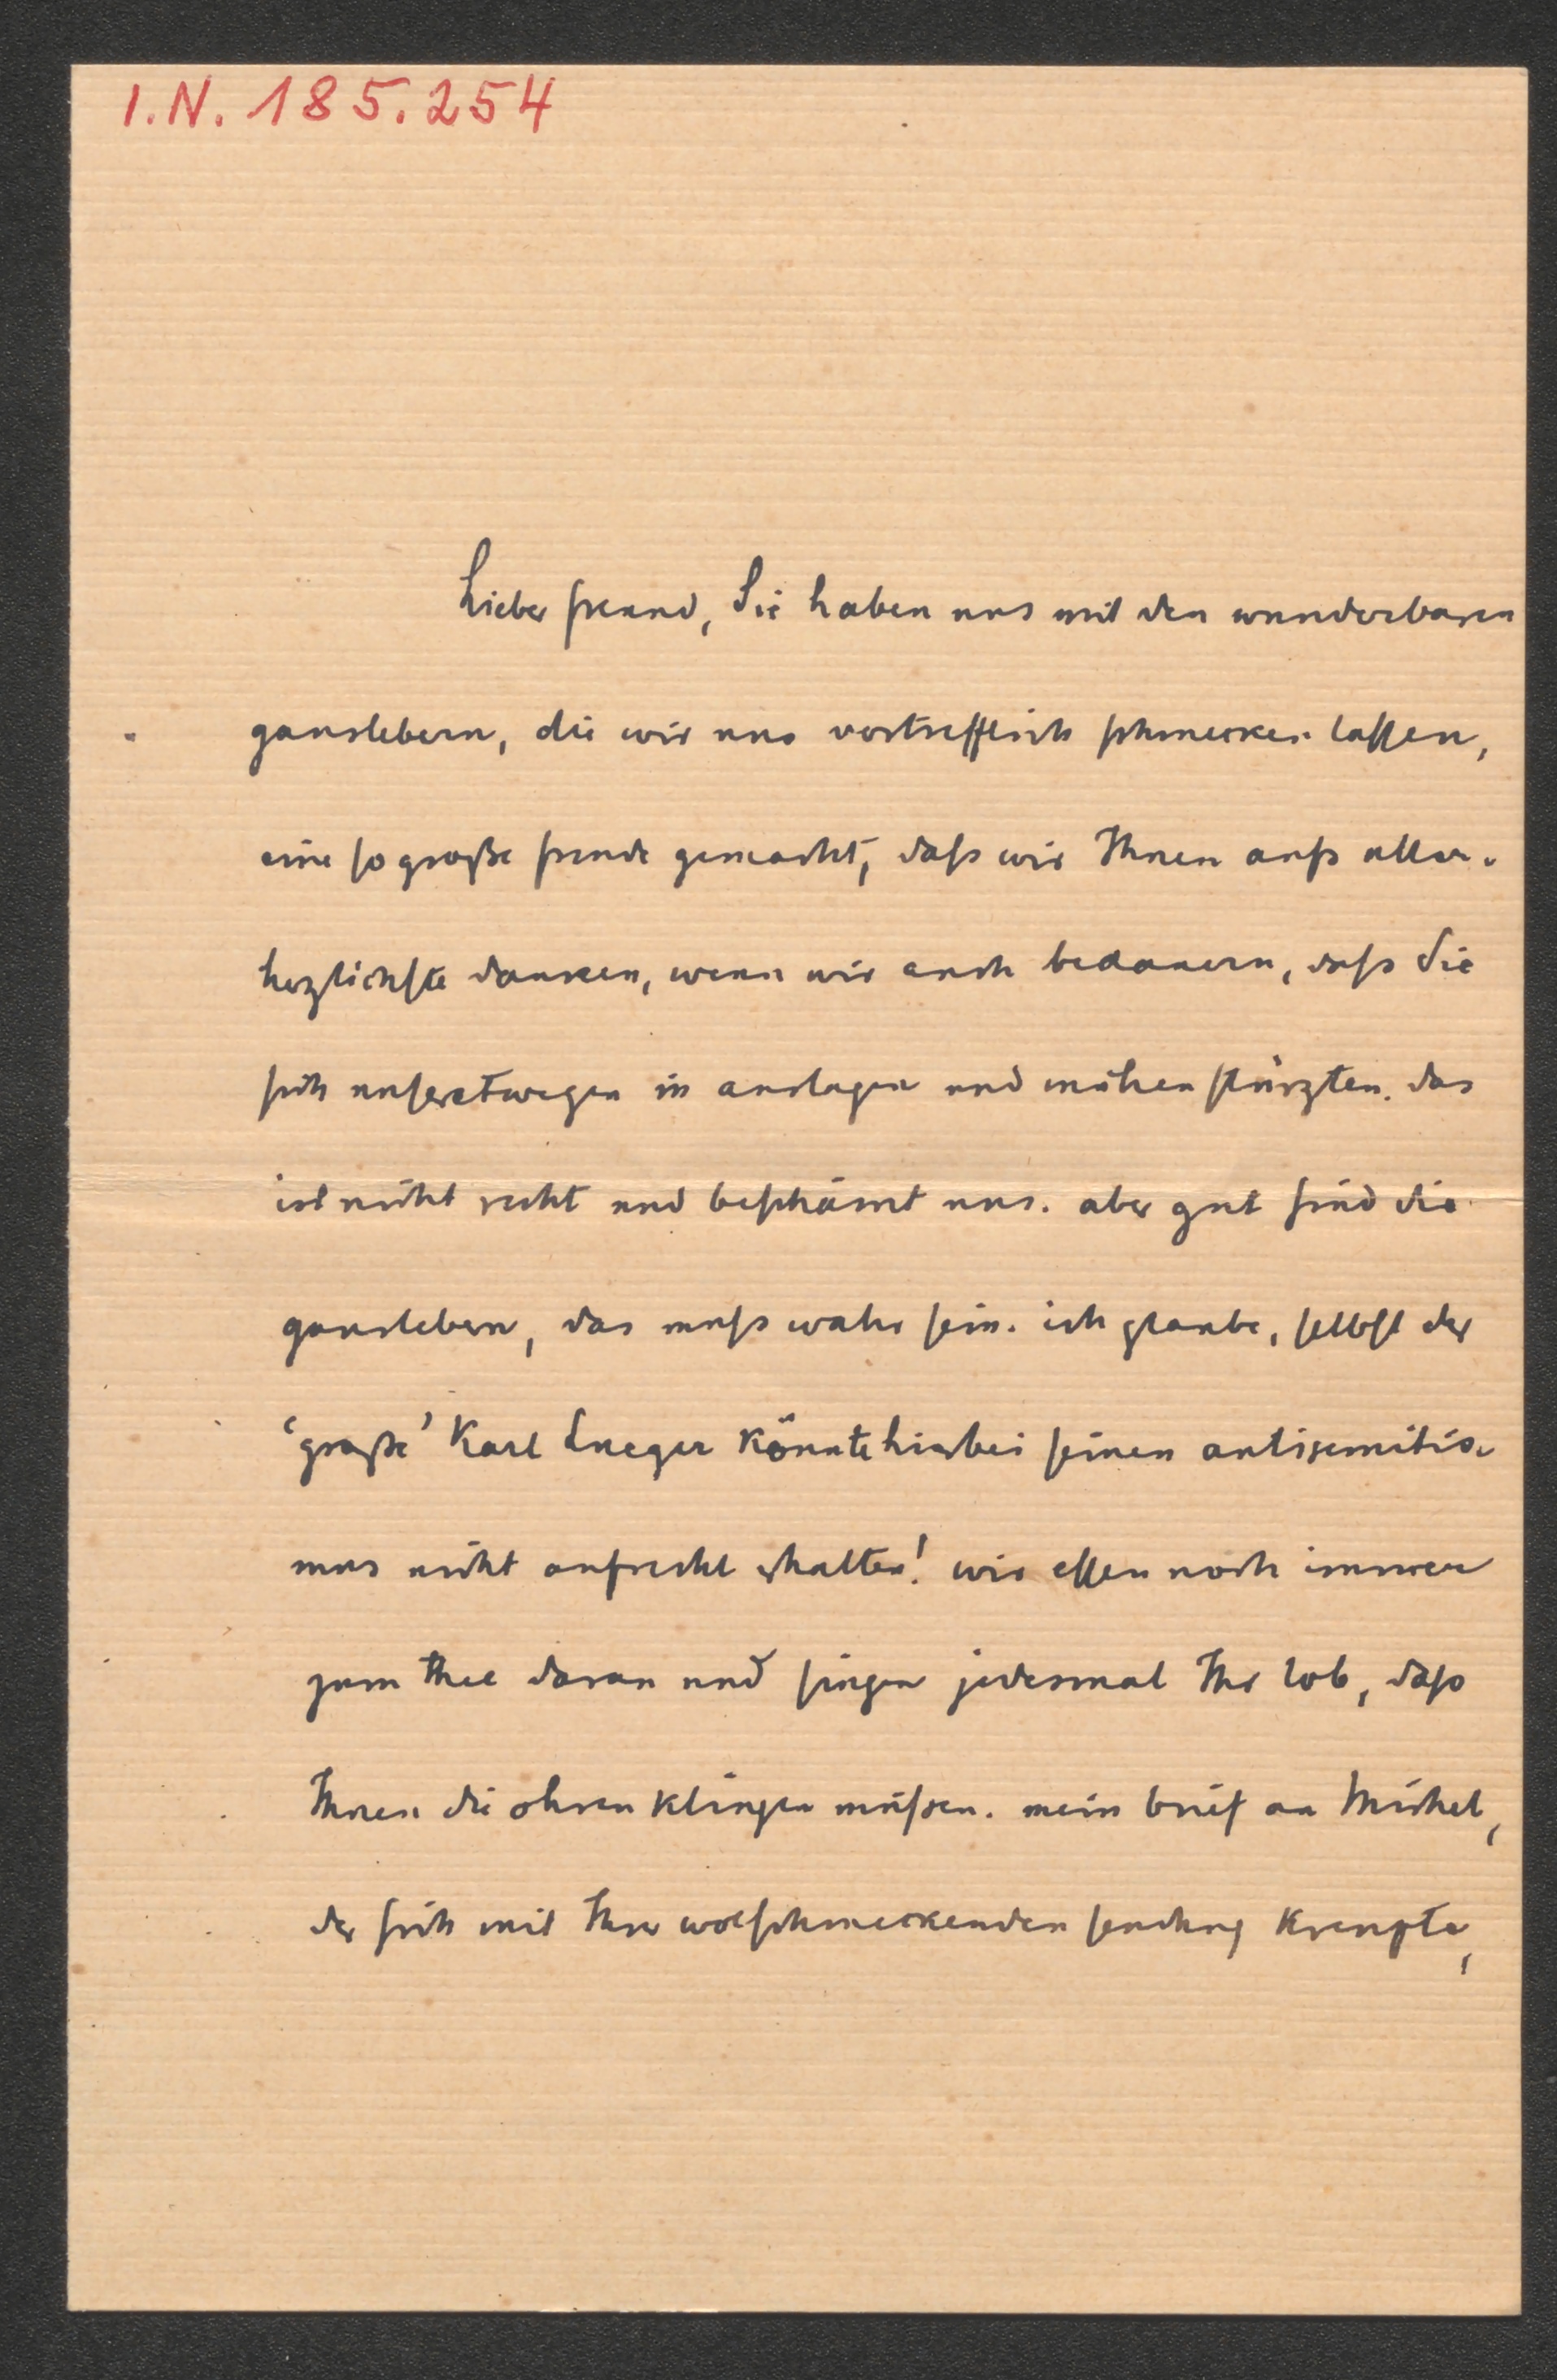 I.N. 185.254
Lieber freund, Sie haben uns mit den wunderbaren
ganslebern, die wir uns vortrefflich schmecken lassen,
eine so große freude gemacht, dass wir Ihnen aufs aller-
herzlichste danken, wenn wir auch bedauern, dass Sie
sich unseretwegen in auslagen und mühen stürzten. das
ist nicht recht und beschämt uns. aber gut sind die
ganslebern, das muss wahr sein. ich glaube, selbst der
‘große’ Karl Lueger könnte hierbei seinen antisemitis-
mus nicht aufrecht erhalten! wir essen noch immer
zum thee daran und singen jedesmal Ihr lob, dass
Ihnen die ohren klingen müssen. mein brief an Michel,
der sich mit Ihrer wolschmeckenden sendung kreuzte,